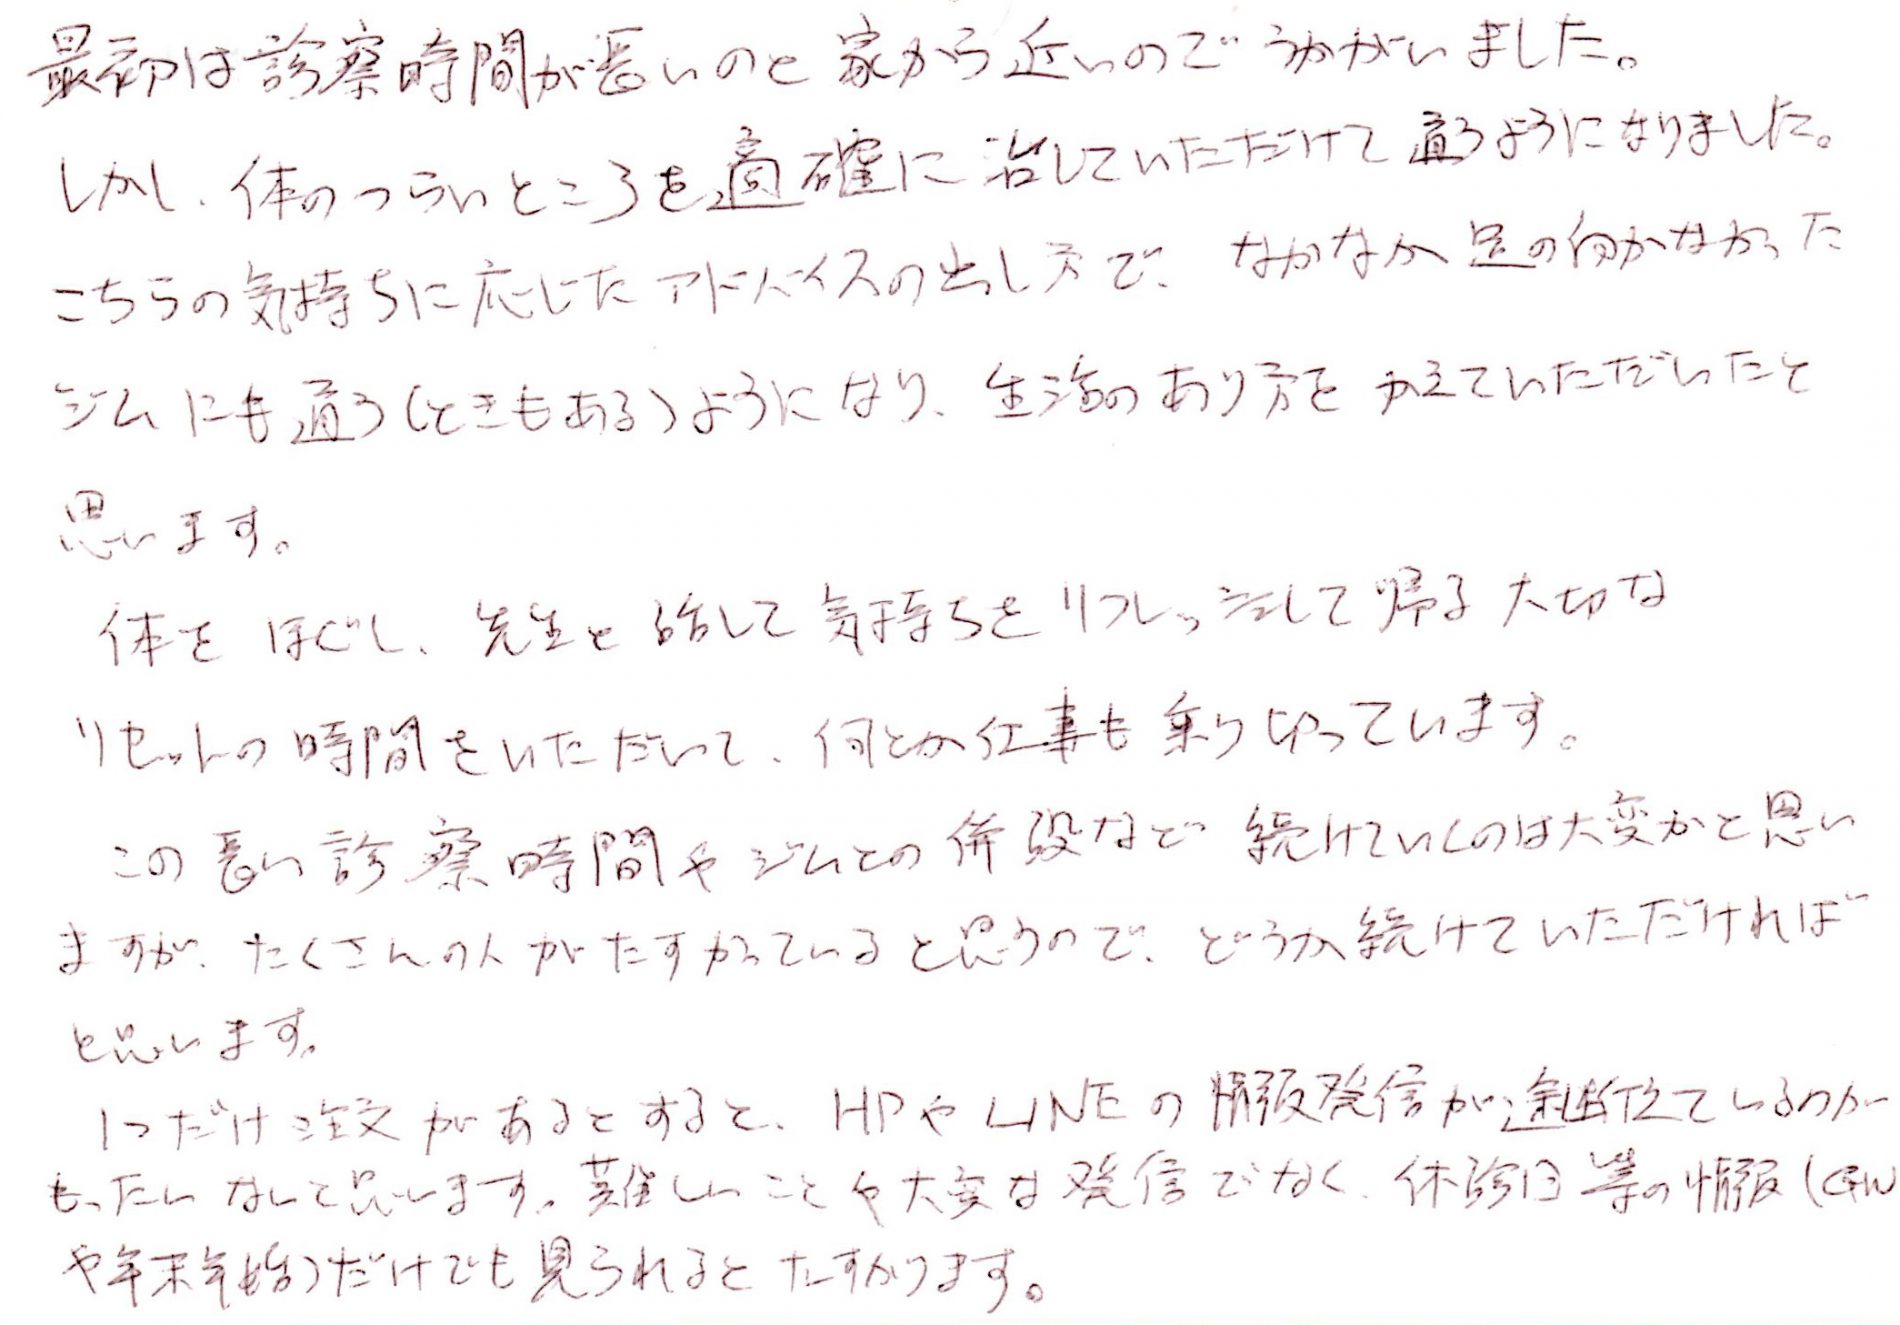 最初は診察時間が長いのと家から近いのでうかがいました。
しかし、体のつらいところを適確に治していただけて通うようになりました。
こちらの気持ちに応じたアドバイスの出し方で、なかなか足の向かなかった
ジムにも通う(ときもある)ようになり、生活のあり方をかえていただいたと
思います。
体をほぐし、先生と話して気持ちをリフレッシュして帰る大切な
リセットの時間をいただいて、何とか仕事も乗り切っています。
この長い診察時間やジムとの併設など続けていくのは大変かと思い
ますが、たくさんの人がたすかっていると思うので、どうか続けていただければ
と思います。
1つだけ注文があるとすると、HPやLINEの情報発信が途絶えているのが
もったいないと思います。難しいことや大変な発信でなく、休診日等の情報(GW
や年末年始)だけでも見られるとたすかります。